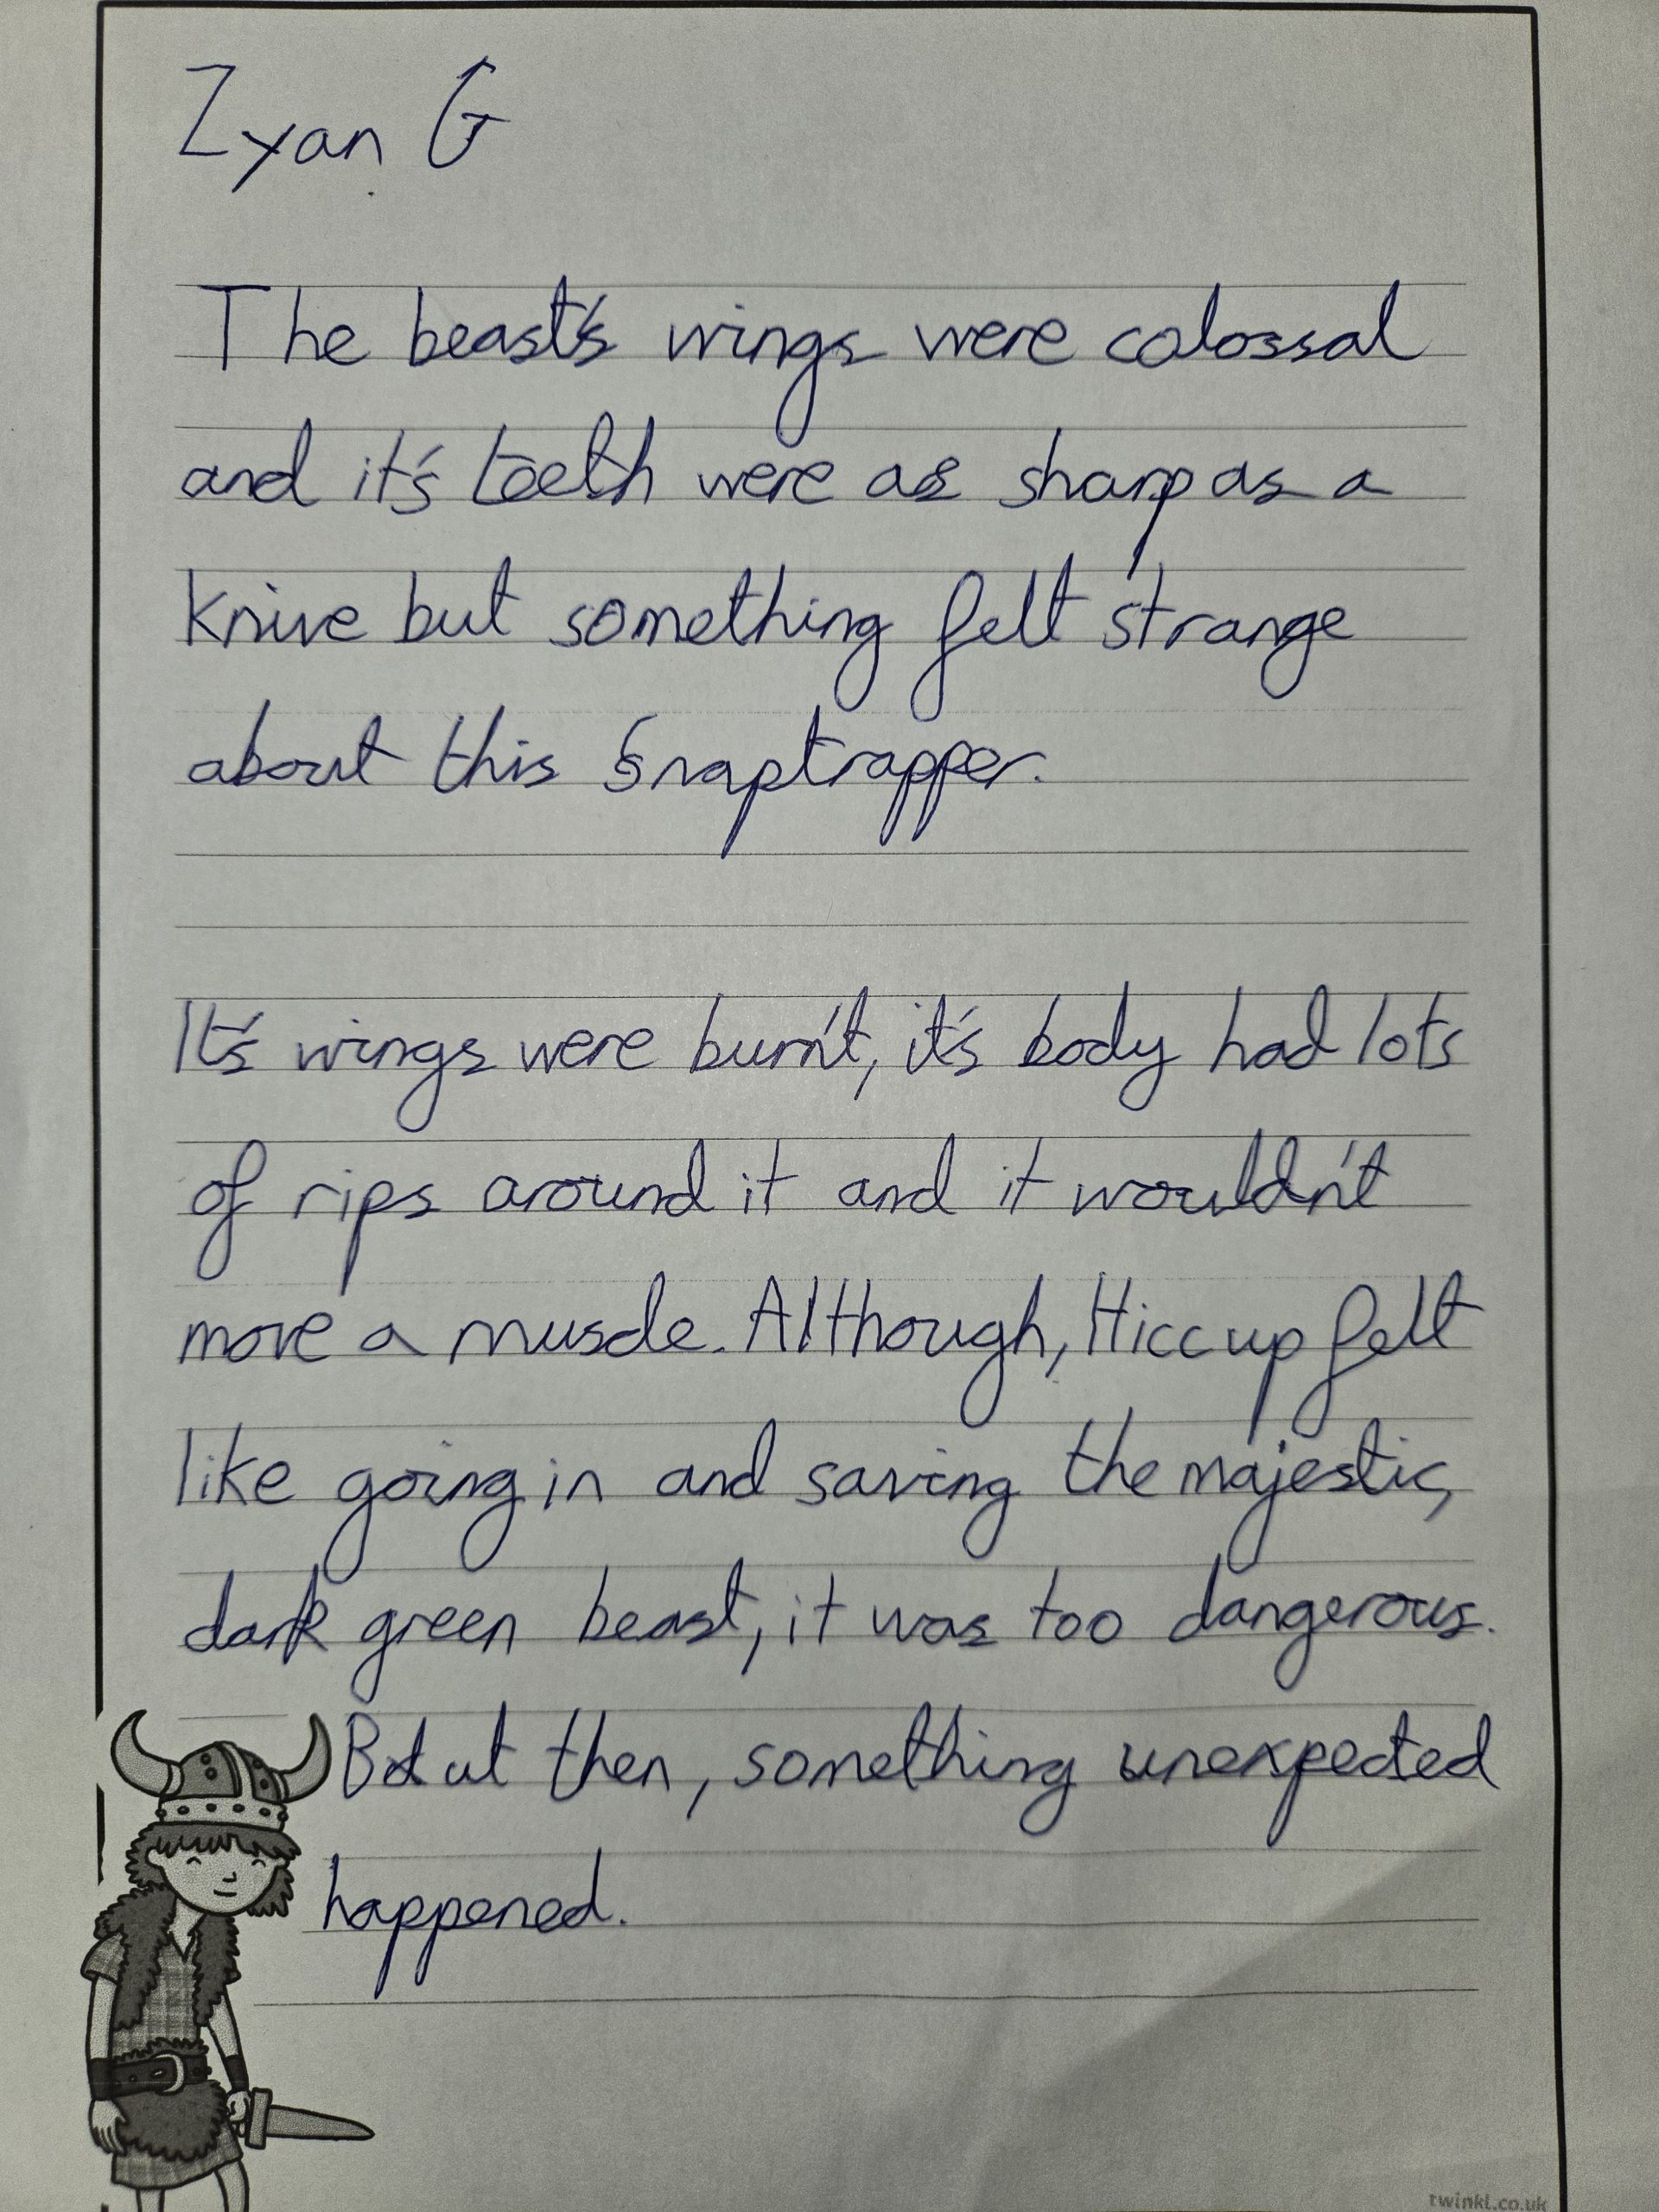 Zyan G
The beast's wings were colossal
and it's teeth were as sharp as a
knive but something felt strange
about this Snaptrapper.
It's wings were burn't, it's body had lots
of rips around it and it wouldn't
move a muscle. Although, Hiccup felt
like going in and saving the majestic,
dark green beast, it was too dangerous.
But then, something unexpected
happened.
twinkl.co.uk